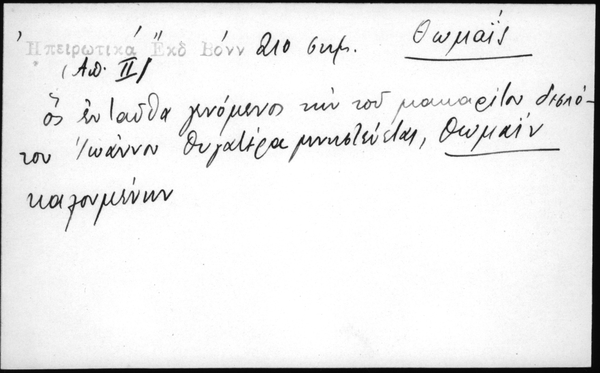 Ἠπειρωτικά Ἐκδ Βόνν 210 σημ. Θωμαΐς
(Απ. II)
ὃς ἐνταῦθα γενόμενος τὴν τοῦ μακαρίτου δεσπό-
του Ἰωάννου θυγατέρα μνηστεύεται, Θωμαΐν
καλουμένην